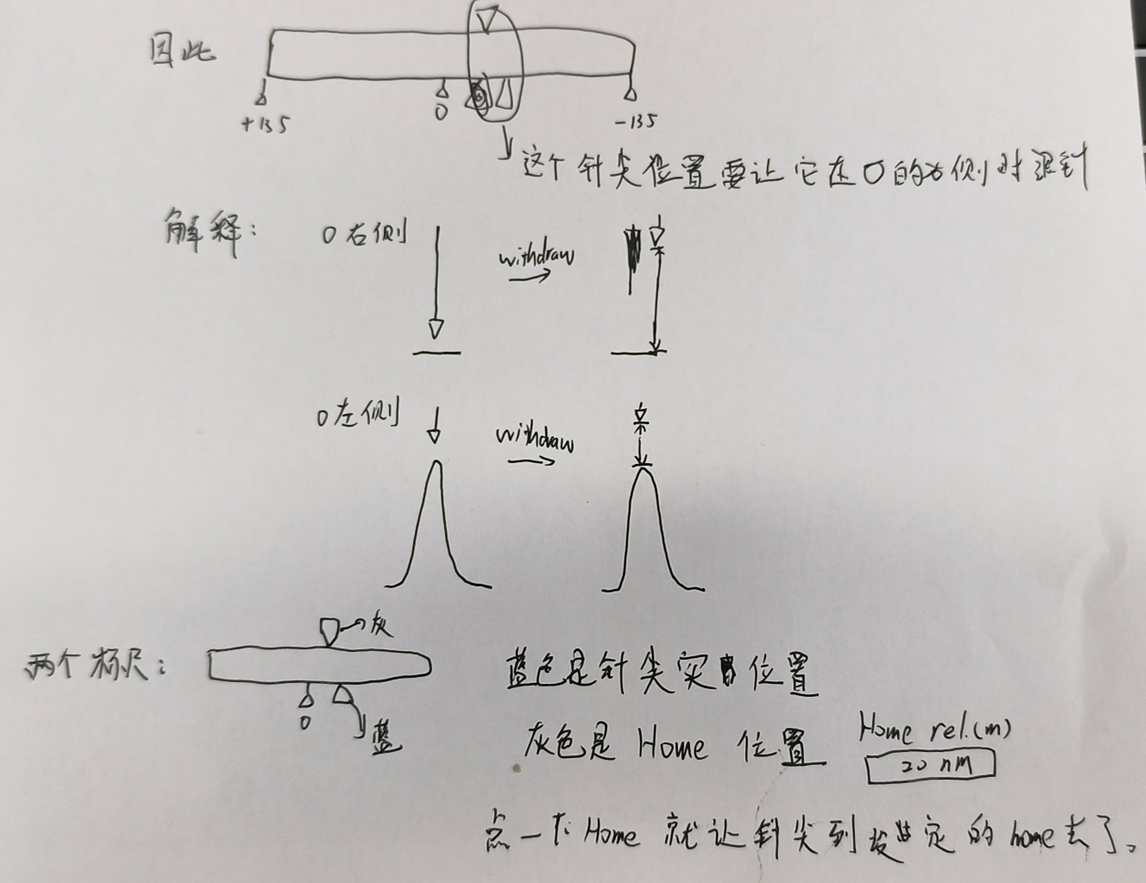 因此
+135
0
-135
这个针尖位置要让它在0的右侧时退针
解释:
0右侧
withdraw
0左侧
withdraw
两个标尺:
灰
0
蓝
蓝色是针尖实 位置
灰色是 Home 位置
Home rel.(m)
20 nM
点一下 Home 就让针尖到设定的 home 去了。